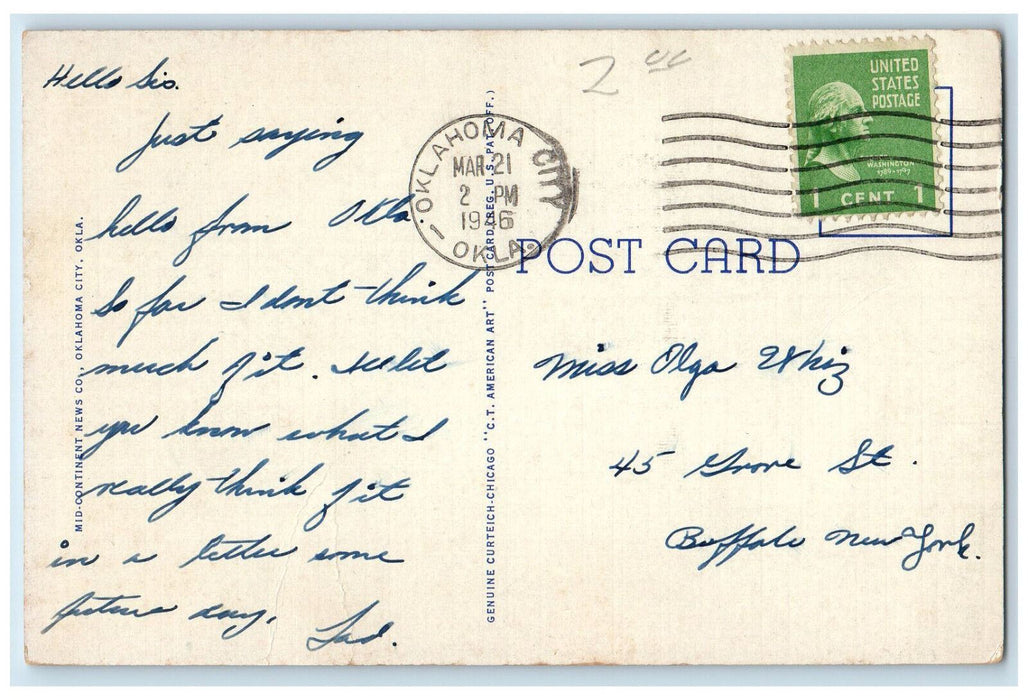 Hello Sis.
Just saying
hello from Okla
So far I dont think
much of it. I'll let
you know what I
really think of it
in a letter some
future day.
Tad.
MID-CONTINENT NEWS CO., OKLAHOMA CITY, OKLA.
GENUINE CURTEICH-CHICAGO "C.T. AMERICAN ART" POST CARD (REG. U.S. PAT. OFF.)
OKLAHOMA CITY
MAR 21
2 PM
1946
OKLA.
2 00
UNITED
STATES
POSTAGE
WASHINGTON
1789-1797
1 CENT 1
POST CARD
Miss Olga Whiz
45 Grove St.
Buffalo New York.